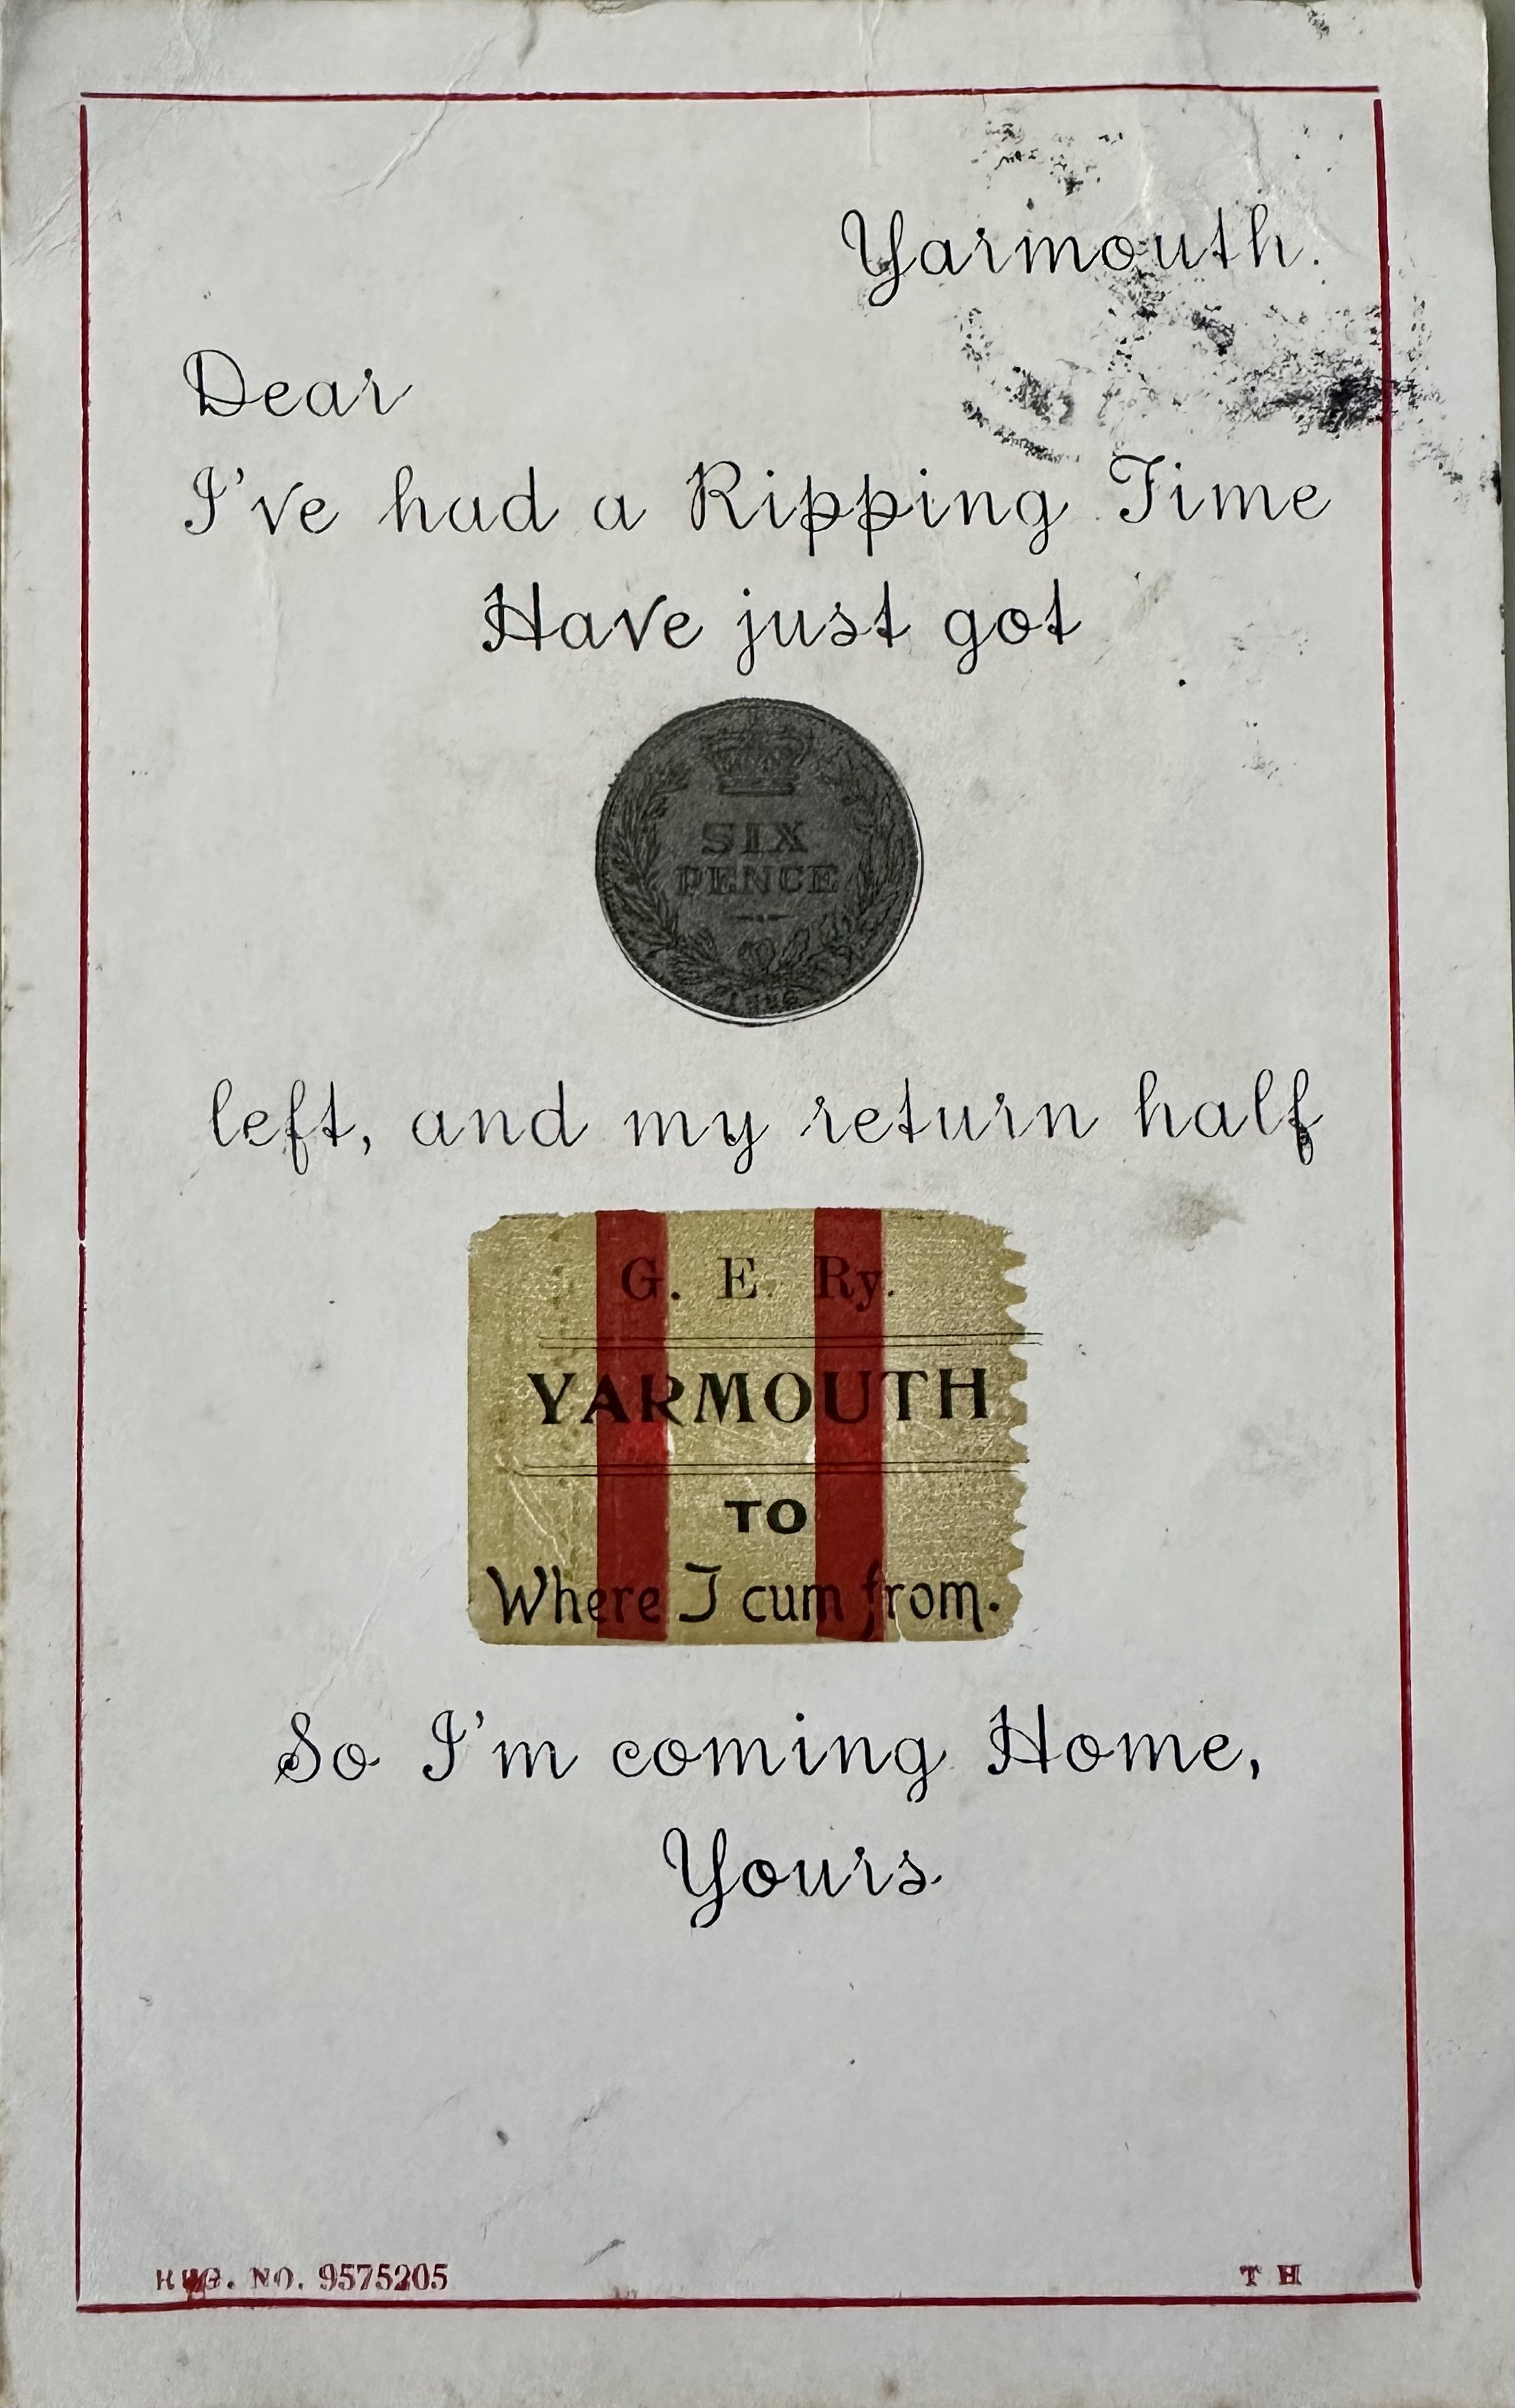 Yarmouth.
Dear
I've had a Ripping Time
Have just got
SIX
PENCE
left, and my return half
G. E. Ry.
YARMOUTH
TO
Where I cum from.
So I'm coming Home,
Yours
REG. NO. 9575205
T H